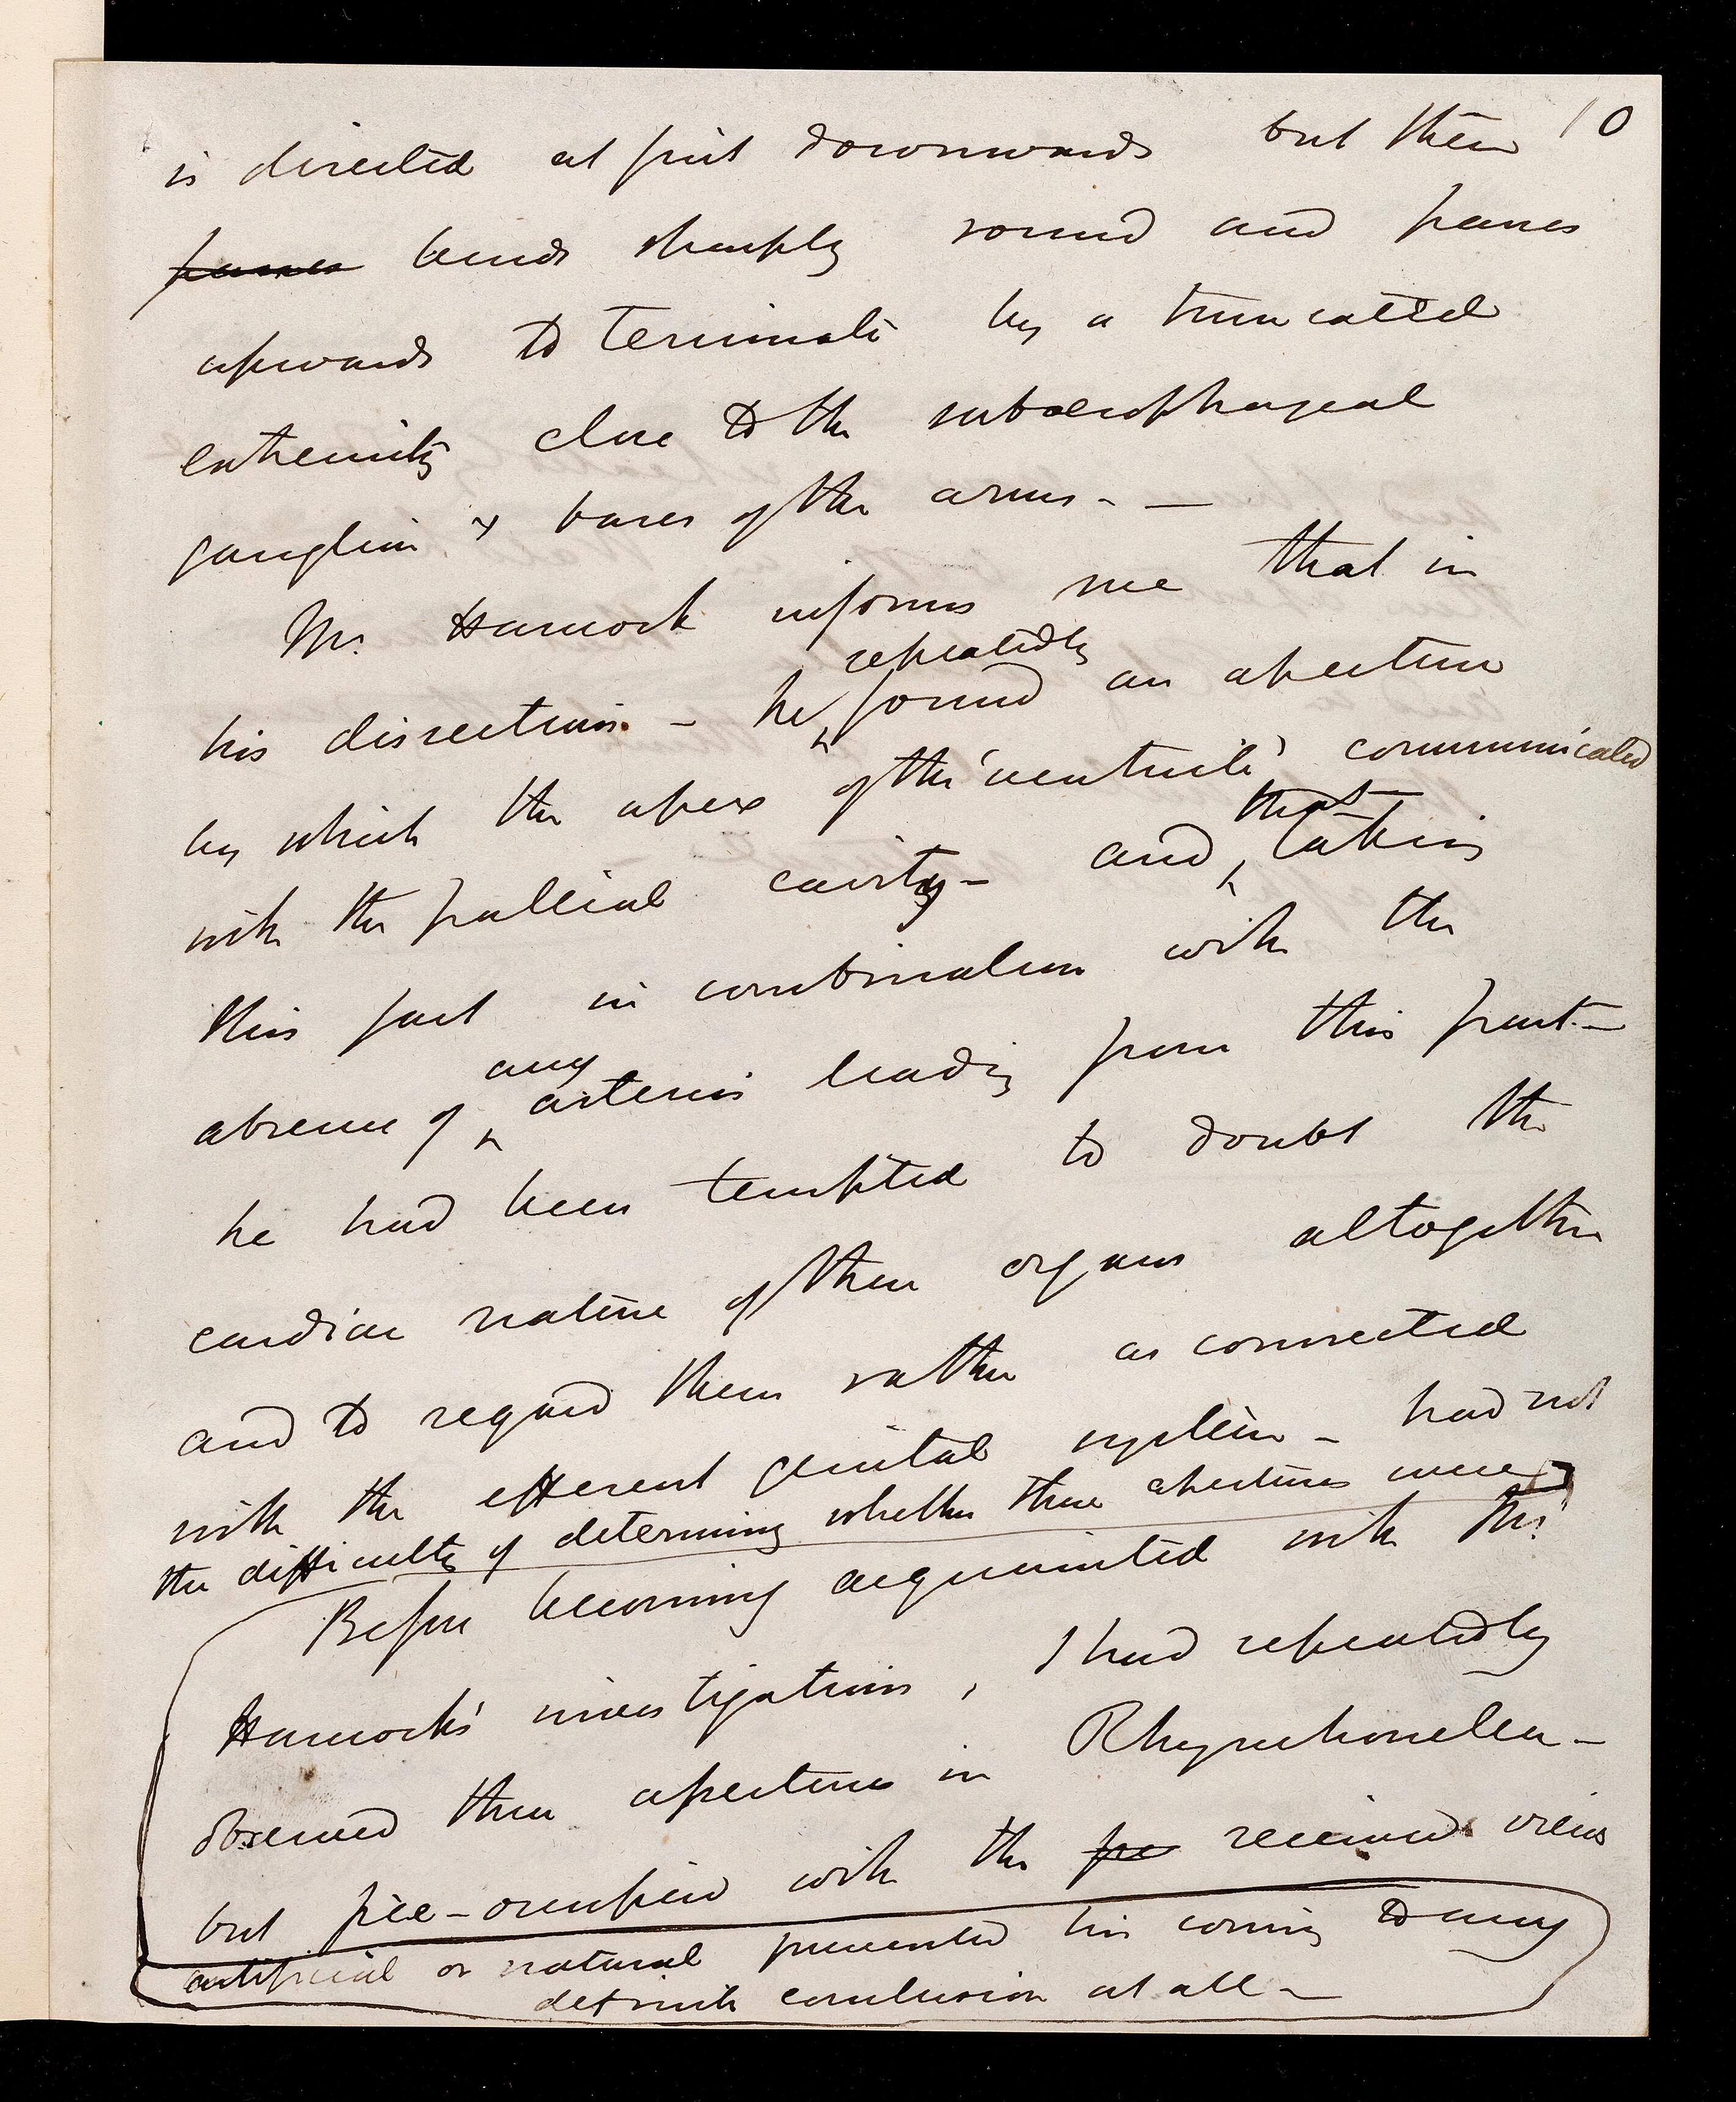 10
is directed at first downwards but then
passes bends sharply round and passes
upwards to terminate by a truncated
extremity close to the subœsophageal
ganglion & bases of the arms. —
Mr. Hancock informs me that in
repeatedly
his dissections – he found an aperture
by which the apex of the 'ventricle' communicated
with the pallial cavity – and that taking
this fact in combination with the
any
absence of arteries leading from this part. –
he had been tempted to doubt the
cardiac nature of these organs altogether
and to regard them rather as connected
with the efferent genital system – had not
the difficulty of determining whether these apertures were
Before becoming acquainted with Mr.
Hancock's investigations, I had repeatedly
observed these apertures in Rhynchonella –
but pre-occupied with the pre received views
artificial or natural prevented his coming to any
definite conclusion at all –